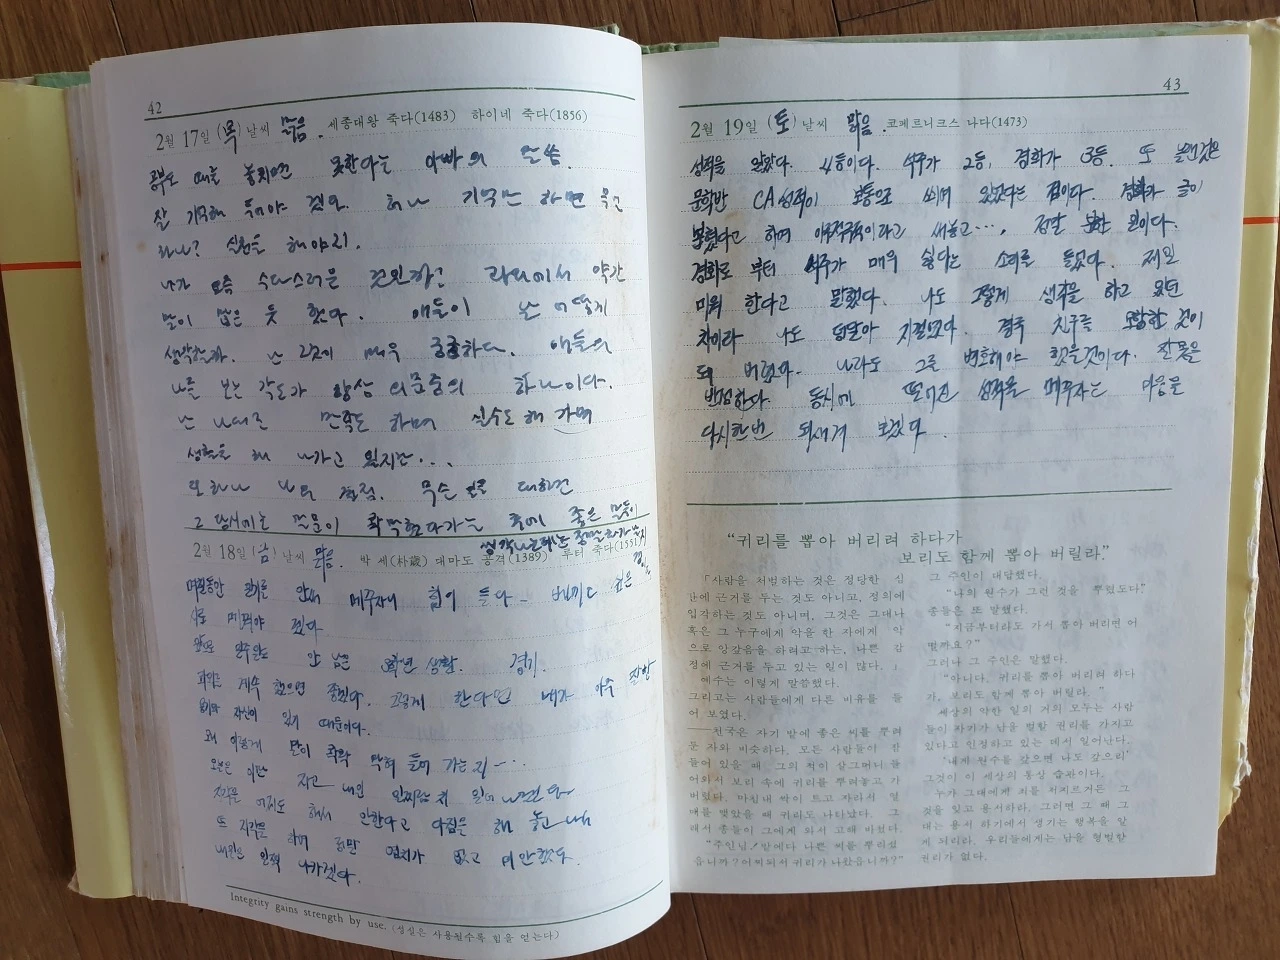 42
2월 17일 (목) 날씨 맑음. 세종대왕 죽다(1483) 하이네 죽다(1856)
공부도 때를 놓치면 못한다는 아빠의 말씀.
잘 기억해 둬야 겠다. 허나 기억만 하면 뭐
하나? 실천을 해야지.
내가 요즘 수다스러운 것인가? 약간
말이 많은 듯 했다. 애들이 날 어떻게
생각할까. 난 그것이 매우 궁금하다. 애들의
나를 보는 각도가 항상 의문중의 하나이다.
난 나대로 만족도 하며 실수도 해 가며
생활을 해 나가고 있지만...
또 하나 나의 결점. 무슨 일을 대하면
그 당시에는 말문이 콱막혔다가는 후에 좋은 말들이
2월 18일 (금) 날씨 맑음. 박 세(朴葳) 대마도 공격(1389) 루터 죽다(1551)
며칠동안 일기를 안써 메꾸자니 힘이 든다.
메꿔야 겠다
앞으로 일주일도 안 남은 학년 생활.
계속 했으면 좋겠다. 그렇게 한다면 내가 아주 잘할
자신이 있기 때문이다.
왜 이렇게 말이 콱콱 막혀 들어 가는지...
오늘은 이만 자고 내일 일찍
지각은 어지간 해서 안한다고 다짐은 해 놓고
또 지각을 하여 정말 면목이 없고 미안했다.
내일은 일찍 나가겠다.
Integrity gains strength by use. (성실은 사용될수록 힘을 얻는다)
43
2월 19일 (토) 날씨 맑음. 코페르니크스 나다(1473)
성적을 알았다. 4등이다. 석주가 2등, 경화가 3등. 또 놀랜것은
문학반 CA성적이 보통으로 되어 있었다는 점이다. 경화가 글이
하여 써놓고..., 정말 분한 일이다.
경화로 부터 석주가 매우 싫다는 소리를 들었다. 제일
미워 한다고 말했다. 나도 그렇게 생각을 하고 있던
차이라 나도 덩달아 지껄였다. 결국 친구를 모함한 것이
되 버렸다. 나라도 그를 변호해야 했을것이다. 잘못을
반성한다. 동시에 떨어진 성적을 메꾸자는 마음을
다시한번 되새겨 보겠다.
“귀리를 뽑아 버리려 하다가
보리도 함께 뽑아 버릴라.”
「사람을 처벌하는 것은 정당한 심
판에 근거를 두는 것도 아니고, 정의에
입각하는 것도 아니며, 그것은 그대나
혹은 그 누구에게 악을 한 자에게 악
으로 앙갚음을 하려고 하는, 나쁜 감
정에 근거를 두고 있는 일이 많다.」
예수는 이렇게 말씀했다.
그리고는 사람들에게 다른 비유를 들
어 보였다.
——천국은 자기 밭에 좋은 씨를 뿌려
둔 자와 비슷하다. 모든 사람들이 잠
들어 있을 때, 그의 적이 살그머니 들
어와서 보리 속에 귀리를 뿌려놓고 가
버렸다. 마침내 싹이 트고 자라서 열
매를 맺었을 때 귀리도 나타났다. 그
래서 종들이 그에게 와서 고해 바쳤다.
“주인님! 밭에다 나쁜 씨를 뿌리셨
습니까? 어찌하여 귀리가 나왔읍니까?”
그 주인이 대답했다.
“나의 원수가 그런 것을 뿌렸도다”
종들은 또 말했다.
“지금부터라도 가서 뽑아 버리면 어
떨까요?”
그러나 그 주인은 말했다.
“아니다. 귀리를 뽑아 버리려 하다
가, 보리도 함께 뽑아 버릴라.”
세상의 악한 일의 거의 모두는 사람
들이 자기가 남을 벌할 권리를 가지고
있다고 인정하고 있는 데서 일어난다.
‘내게 원수를 갚으면 나도 갚으리’
그것이 이 세상의 통상 습관이다.
누가 그대에게 죄를 저지르거든 그
것을 잊고 용서하라. 그러면 그 때 그
대는 용서 하기에서 생기는 행복을 알
게 되리라. 우리들에게는 남을 형벌할
권리가 없다.